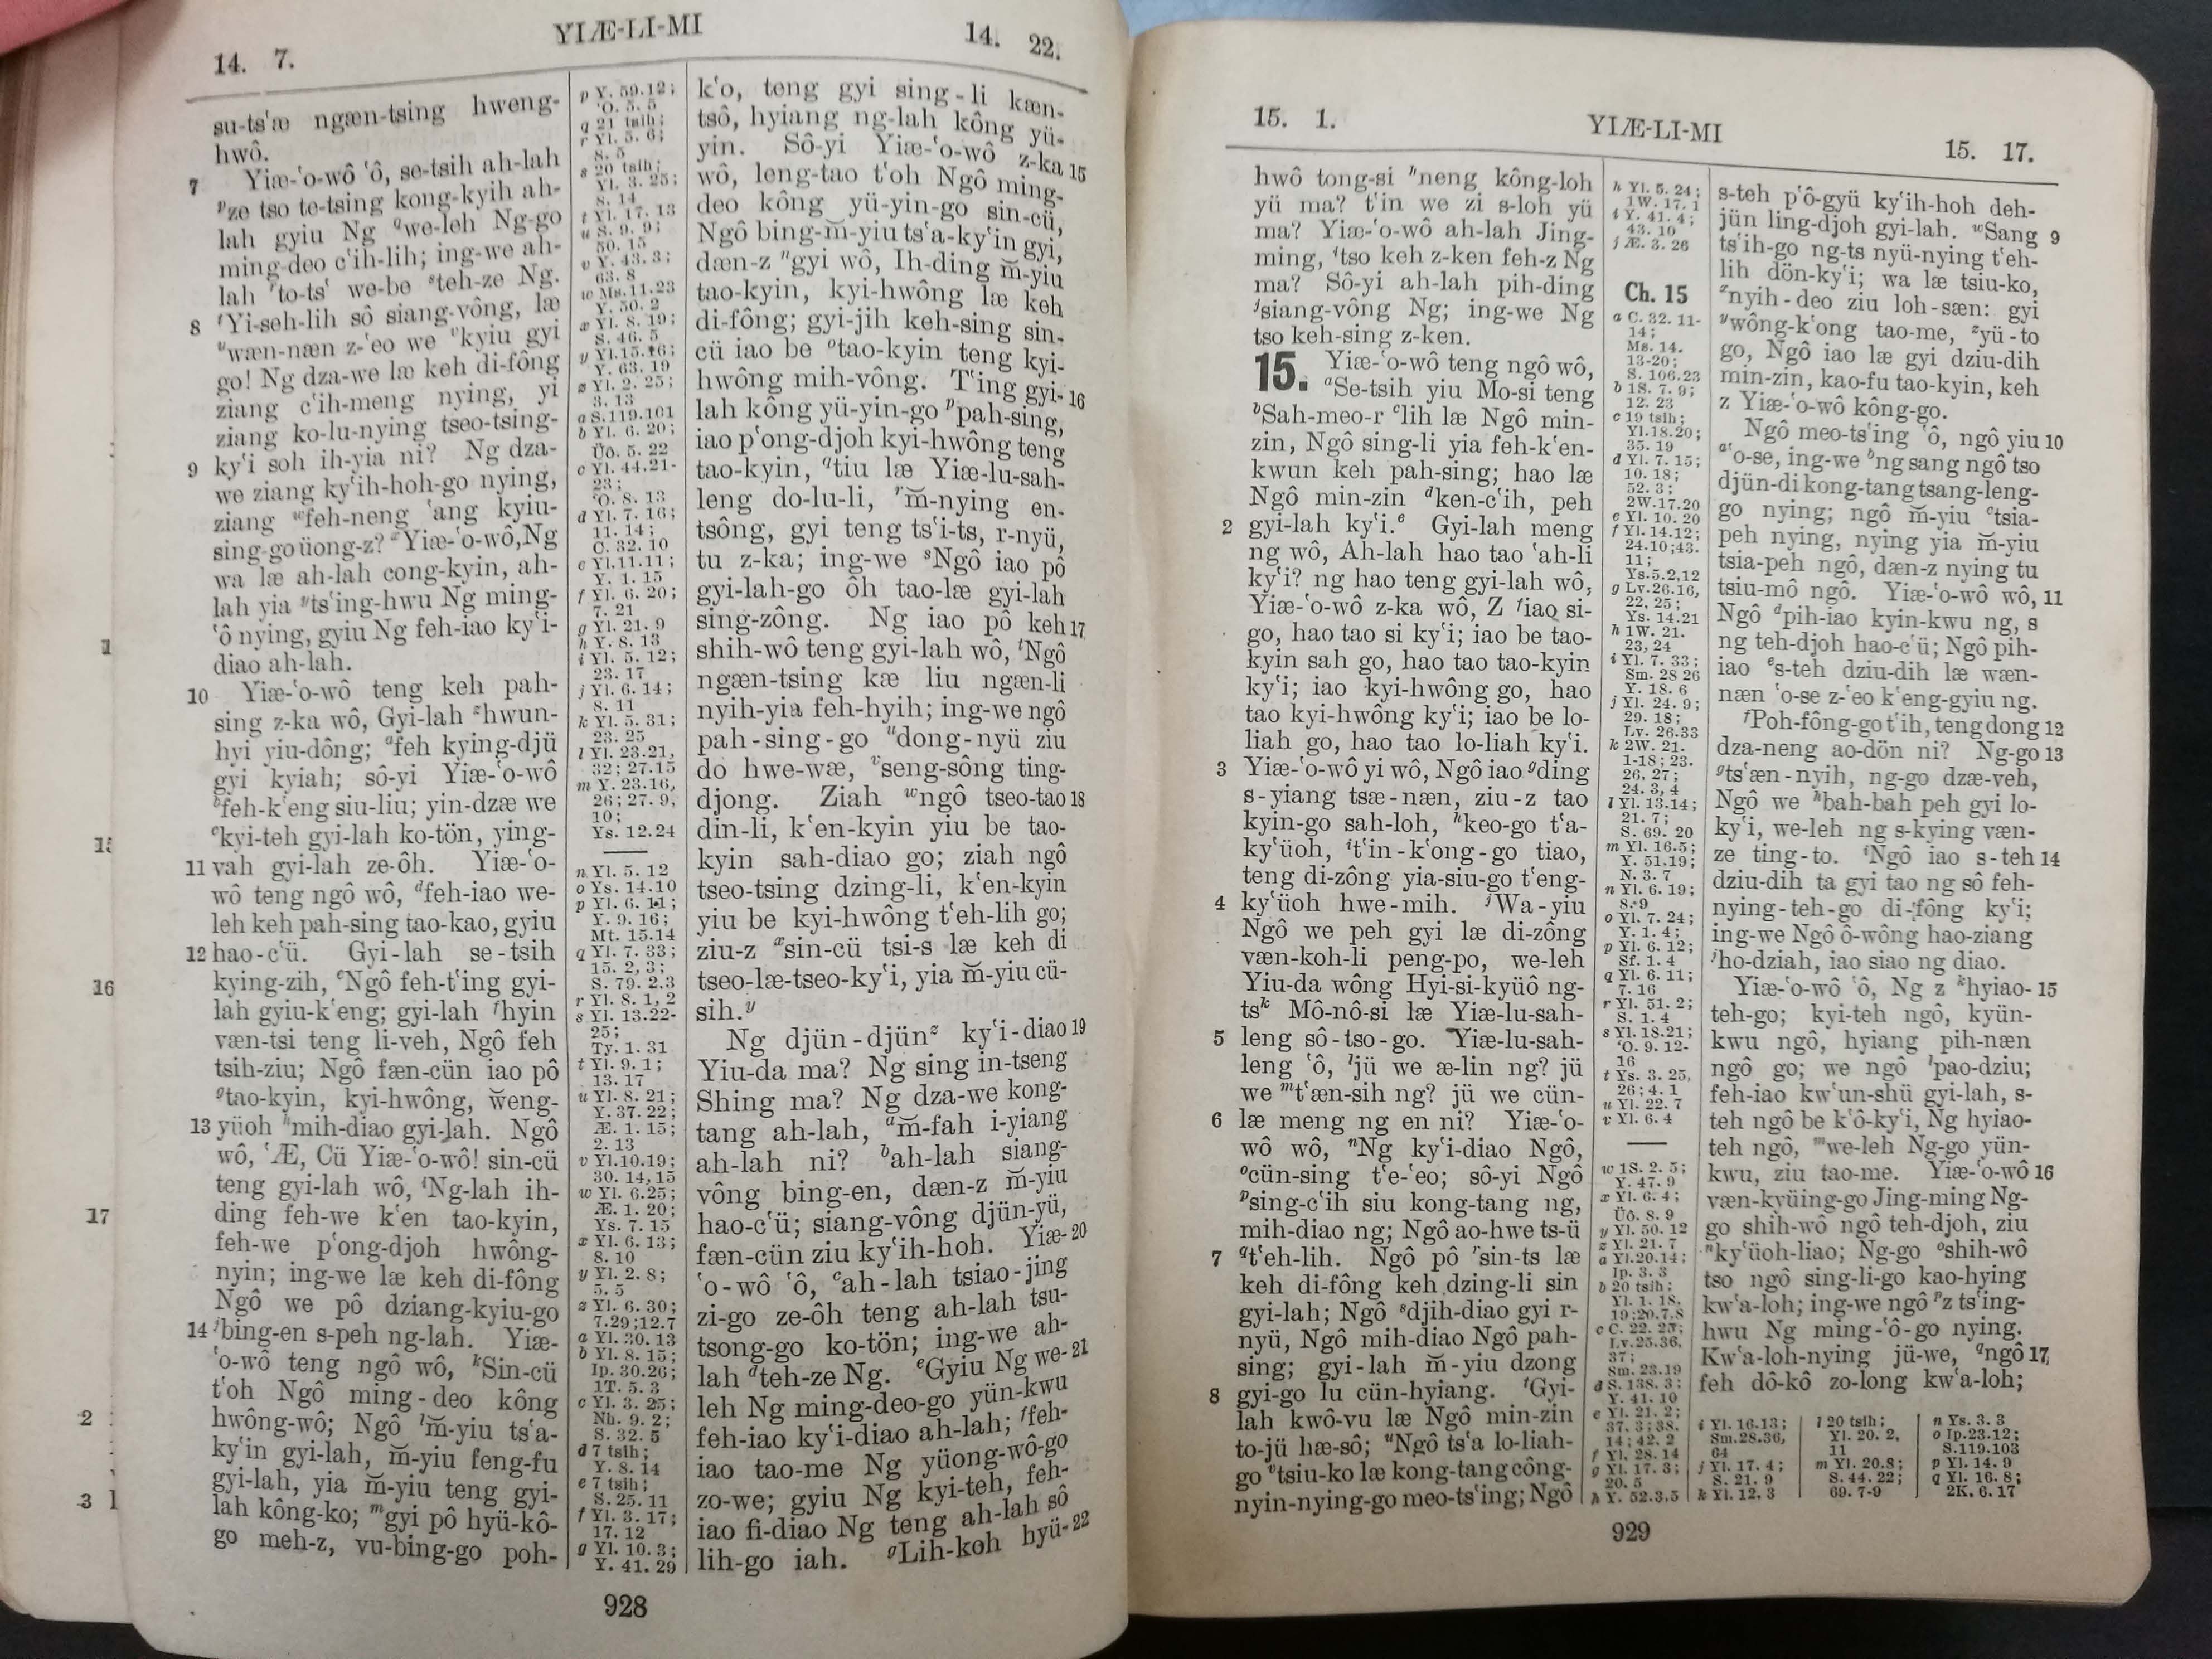 14. 7.
YIÆ-LI-MI
14. 22.
su-ts‘æ ngæn-tsing hweng-
hwô.
7 Yiæ-‘o-wô ‘ô, se-tsih ah-lah
ᵖze tso te-tsing kong-kyih ah-
lah gyiu Ng ᵠwe-leh Ng-go
ming-deo c‘ih-lih; ing-we ah-
lah ʳto-ts‘ we-be ˢteh-ze Ng.
8 ᵗYi-seh-lih sô siang-vông, læ
ᵘwæn-næn z-‘eo we ᵛkyiu gyi
go! Ng dza-we læ keh di-fông
ziang c‘ih-meng nying, yi
ziang ko-lu-nying tseo-tsing-
9 ky‘i soh ih-yia ni? Ng dza-
we ziang ky‘ih-hoh-go nying,
ziang ʷfeh-neng ‘ang kyiu-
sing-go üong-z? ˣYiæ-‘o-wô, Ng
wa læ ah-lah cong-kyin, ah-
lah yia ʸts‘ing-hwu Ng ming-
‘ô nying, gyiu Ng feh-iao ky‘i-
diao ah-lah.
10 Yiæ-‘o-wô teng keh pah-
sing z-ka wô, Gyi-lah ᶻhwun-
hyi yiu-dông; ᵃfeh kying-djü
gyi kyiah; sô-yi Yiæ-‘o-wô
ᵇfeh-k‘eng siu-liu; yin-dzæ we
ᶜkyi-teh gyi-lah ko-tön, ying-
11 vah gyi-lah ze-ôh. Yiæ-‘o-
wô teng ngô wô, ᵈfeh-iao we-
leh keh pah-sing tao-kao, gyiu
12 hao-c‘ü. Gyi-lah se-tsih
kying-zih, ᵉNgô feh-t‘ing gyi-
lah gyiu-k‘eng; gyi-lah ᶠhyin
væn-tsi teng li-veh, Ngô feh
tsih-ziu; Ngô fæn-cün iao pô
ᵍtao-kyin, kyi-hwông, w̆eng-
13 yüoh ʰmih-diao gyi-lah. Ngô
wô, ‘Æ, Cü Yiæ-‘o-wô! sin-cü
teng gyi-lah wô, ⁱNg-lah ih-
ding feh-we k‘en tao-kyin,
feh-we p‘ong-djoh hwông-
nyin; ing-we læ keh di-fông
Ngô we pô dziang-kyiu-go
14 ʲbing-en s-peh ng-lah. Yiæ-
‘o-wô teng ngô wô, ᵏSin-cü
t‘oh Ngô ming-deo kông
hwông-wô; Ngô ˡm̆-yiu ts‘a-
ky‘in gyi-lah, m̆-yiu feng-fu
gyi-lah, yia m̆-yiu teng gyi-
lah kông-ko; ᵐgyi pô hyü-kô-
go meh-z, vu-bing-go poh-
p Y. 59.12;
‘O. 5. 5
q 21 tsih;
r Yl. 5. 6;
8. 5
s 20 tsih;
Yl. 3. 25;
8. 14
t Yl. 17. 13
u S. 9. 9;
50. 15
v Y. 43. 3;
63. 8
w Ms. 11.23
Y. 50. 2
x Yl. 8. 19;
S. 46. 5
y Yl. 15.16;
Y. 63. 19
z Yl. 2. 25;
3. 13
a S. 119.101
b Yl. 6. 20;
Üô. 5. 22
c Yl. 44.21-
23;
‘O. 8. 13
d Yl. 7. 16;
11. 14;
C. 32. 10
e Yl. 11.11;
Y. 1. 15
f Yl. 6. 20;
7. 21
g Yl. 21. 9
h Y. 8. 13
i Yl. 5. 12;
23. 17
j Yl. 6. 14;
8. 11
k Yl. 5. 31;
23. 25
l Yl. 23.21,
32; 27.15
m Y. 23.16,
26; 27. 9,
10;
Ys. 12.24
n Yl. 5. 12
o Ys. 14.10
p Yl. 6. 11;
Y. 9. 16;
Mt. 15.14
q Yl. 7. 33;
15. 2, 3;
S. 79. 2.3
r Yl. 8. 1, 2
s Yl. 13.22-
25;
Ty. 1. 31
t Yl. 9. 1;
13. 17
u Yl. 8. 21;
Y. 37. 22;
Æ. 1. 15;
2. 13
v Yl. 10.19;
30. 14,15
w Yl. 6.25;
Æ. 1. 20;
Ys. 7. 15
x Yl. 6. 13;
8. 10
y Yl. 2. 8;
5. 5
z Yl. 6. 30;
7.29; 12.7
a Yl. 30. 13
b Yl. 8. 15;
Ip. 30.26;
1T. 5. 3
c Yl. 3. 25;
Nh. 9. 2;
S. 32. 5
d 7 tsih;
Y. 8. 14
e 7 tsih;
S. 25. 11
f Yl. 3. 17;
17. 12
g Yl. 10. 3;
Y. 41. 29
k‘o, teng gyi sing-li kæn-
tsô, hyiang ng-lah kông yü-
yin. Sô-yi Yiæ-‘o-wô z-ka 15
wô, leng-tao t‘oh Ngô ming-
deo kông yü-yin-go sin-cü,
Ngô bing-m̆-yiu ts‘a-ky‘in gyi,
dæn-z ⁿgyi wô, Ih-ding m̆-yiu
tao-kyin, kyi-hwông læ keh
di-fông; gyi-jih keh-sing sin-
cü iao be ᵒtao-kyin teng kyi-
hwông mih-vông. T‘ing gyi- 16
lah kông yü-yin-go ᵖpah-sing,
iao p‘ong-djoh kyi-hwông teng
tao-kyin, ᵠtiu læ Yiæ-lu-sah-
leng do-lu-li, ʳm̆-nying en-
tsông, gyi teng ts‘i-ts, r-nyü,
tu z-ka; ing-we ˢNgô iao pô
gyi-lah-go ôh tao-læ gyi-lah
sing-zông. Ng iao pô keh 17
shih-wô teng gyi-lah wô, ᵗNgô
ngæn-tsing kæ liu ngæn-li
nyih-yia feh-hyih; ing-we ngô
pah-sing-go ᵘdong-nyü ziu
do hwe-wæ, ᵛseng-sông ting-
djong. Ziah ʷngô tseo-tao 18
din-li, k‘en-kyin yiu be tao-
kyin sah-diao go; ziah ngô
tseo-tsing dzing-li, k‘en-kyin
yiu be kyi-hwông t‘eh-lih go;
ziu-z ˣsin-cü tsi-s læ keh di
tseo-læ-tseo-ky‘i, yia m̆-yiu cü-
sih.ʸ
Ng djün-djünᶻ ky‘i-diao 19
Yiu-da ma? Ng sing in-tseng
Shing ma? Ng dza-we kong-
tang ah-lah, ᵃm̆-fah i-yiang
ah-lah ni? ᵇah-lah siang-
vông bing-en, dæn-z m̆-yiu
hao-c‘ü; siang-vông djün-yü,
fæn-cün ziu ky‘ih-hoh. Yiæ- 20
‘o-wô ‘ô, ᶜah-lah tsiao-jing
zi-go ze-ôh teng ah-lah tsu-
tsong-go ko-tön; ing-we ah-
lah ᵈteh-ze Ng. ᵉGyiu Ng we- 21
leh Ng ming-deo-go yün-kwu
feh-iao ky‘i-diao ah-lah; ᶠfeh-
iao tao-me Ng yüong-wô-go
zo-we; gyiu Ng kyi-teh, feh-
iao fi-diao Ng teng ah-lah sô
lih-go iah. ᵍLih-koh hyü- 22
928
1
15
16
17
2
3
15. 1.
YIÆ-LI-MI
15. 17.
hwô tong-si ⁿneng kông-loh
yü ma? t‘in we zi s-loh yü
ma? Yiæ-‘o-wô ah-lah Jing-
ming, ⁱtso keh z-ken feh-z Ng
ma? Sô-yi ah-lah pih-ding
ʲsiang-vông Ng; ing-we Ng
tso keh-sing z-ken.
15. Yiæ-‘o-wô teng ngô wô,
ᵃSe-tsih yiu Mo-si teng
ᵇSah-meo-r ᶜlih læ Ngô min-
zin, Ngô sing-li yia feh-k‘en-
kwun keh pah-sing; hao læ
Ngô min-zin ᵈken-c‘ih, peh
2 gyi-lah ky‘i.ᵉ Gyi-lah meng
ng wô, Ah-lah hao tao ‘ah-li
ky‘i? ng hao teng gyi-lah wô,
Yiæ-‘o-wô z-ka wô, Z ᶠiao si-
go, hao tao si ky‘i; iao be tao-
kyin sah go, hao tao tao-kyin
ky‘i; iao kyi-hwông go, hao
tao kyi-hwông ky‘i; iao be lo-
liah go, hao tao lo-liah ky‘i.
3 Yiæ-‘o-wô yi wô, Ngô iao ᵍding
s-yiang tsæ-næn, ziu-z tao
kyin-go sah-loh, ʰkeo-go t‘a-
ky‘üoh, ⁱt‘in-k‘ong-go tiao,
teng di-zông yia-siu-go t‘eng-
4 ky‘üoh hwe-mih. ʲWa-yiu
Ngô we peh gyi læ di-zông
væn-koh-li peng-po, we-leh
Yiu-da wông Hyi-si-kyüô ng-
tsᵏ Mô-nô-si læ Yiæ-lu-sah-
5 leng sô-tso-go. Yiæ-lu-sah-
leng ‘ô, ˡjü we æ-lin ng? jü
we ᵐt‘æn-sih ng? jü we cün-
6 læ meng ng en ni? Yiæ-‘o-
wô wô, ⁿNg ky‘i-diao Ngô,
ᵒcün-sing t‘e-‘eo; sô-yi Ngô
ᵖsing-c‘ih siu kong-tang ng,
mih-diao ng; Ngô ao-hwe ts-ü
7 ᵠt‘eh-lih. Ngô pô ʳsin-ts læ
keh di-fông keh dzing-li sin
gyi-lah; Ngô ˢdjih-diao gyi r-
nyü, Ngô mih-diao Ngô pah-
sing; gyi-lah m̆-yiu dzong
8 gyi-go lu cün-hyiang. ᵗGyi-
lah kwô-vu læ Ngô min-zin
to-jü hæ-sô; ᵘNgô ts‘a lo-liah-
go ᵛtsiu-ko læ kong-tang công-
nyin-nying-go meo-ts‘ing; Ngô
h Yl. 5. 24;
1W. 17. 1
i Y. 41. 4;
43. 10
j Æ. 3. 26
Ch. 15
a C. 32. 11-
14;
Ms. 14.
13-20;
S. 106.23
b 1S. 7. 9;
12. 23
c 19 tsih;
Yl. 18.20;
35. 19
d Yl. 7. 15;
10. 18;
52. 3;
2W.17.20
e Yl. 10. 20
f Yl. 14.12;
24.10; 43.
11;
Ys.5.2,12
g Lv.26.16,
22, 25;
Ys. 14.21
h 1W. 21.
23, 24
i Yl. 7. 33;
Sm. 28 26
Y. 18. 6
j Yl. 24. 9;
29. 18;
Lv. 26.33
k 2W. 21.
1-18; 23.
26, 27;
24. 3, 4
l Yl. 13.14;
21. 7;
S. 69. 20
m Yl. 16.5;
Y. 51.19;
N. 3. 7
n Yl. 6. 19;
8. 9
o Yl. 7. 24;
Y. 1. 4;
p Yl. 6. 12;
Sf. 1. 4
q Yl. 6. 11;
7. 16
r Yl. 51. 2;
S. 1. 4
s Yl. 18.21;
‘O. 9. 12-
16
t Ys. 3. 25,
26; 4. 1
u Yl. 22. 7
v Yl. 6. 4
w 1S. 2. 5;
Y. 47. 9
x Yl. 6. 4;
Üô. 8. 9
y Yl. 50. 12
z Yl. 21. 7
a Yl.20.14;
Ip. 3. 3
b 20 tsih;
Yl. 1. 18,
19; 20.7.8
c C. 22. 25;
Lv.25.36,
37;
Sm. 23.19
d S. 138. 3;
Y. 41. 10
e Yl. 21. 2;
37. 3; 38.
14; 42. 2
f Yl. 28. 14
g Yl. 17. 3;
20. 5
h Y. 52.3,5
s-teh p‘ô-gyü ky‘ih-hoh deh-
jün ling-djoh gyi-lah. ʷSang 9
ts‘ih-go ng-ts nyü-nying t‘eh-
lih dön-ky‘i; wa læ tsiu-ko,
ˣnyih-deo ziu loh-sæn: gyi
ʸwông-k‘ong tao-me, ᶻyü-to
go, Ngô iao læ gyi dziu-dih
min-zin, kao-fu tao-kyin, keh
z Yiæ-‘o-wô kông-go.
Ngô meo-ts‘ing ‘ô, ngô yiu 10
ᵃ‘o-se, ing-we ᵇng sang ngô tso
djün-di kong-tang tsang-leng-
go nying; ngô m̆-yiu ᶜtsia-
peh nying, nying yia m̆-yiu
tsia-peh ngô, dæn-z nying tu
tsiu-mô ngô. Yiæ-‘o-wô wô, 11
Ngô ᵈpih-iao kyin-kwu ng, s
ng teh-djoh hao-c‘ü; Ngô pih-
iao ᵉs-teh dziu-dih læ wæn-
næn ‘o-se z-‘eo k‘eng-gyiu ng.
ᶠPoh-fông-go t‘ih, teng dong 12
dza-neng ao-dön ni? Ng-go 13
ᵍts‘æn-nyih, ng-go dzæ-veh,
Ngô we ʰbah-bah peh gyi lo-
ky‘i, we-leh ng s-kying væn-
ze ting-to. ⁱNgô iao s-teh 14
dziu-dih ta gyi tao ng sô feh-
nying-teh-go di-fông ky‘i;
ing-we Ngô ô-wông hao-ziang
ʲho-dziah, iao siao ng diao.
Yiæ-‘o-wô ‘ô, Ng z ᵏhyiao- 15
teh-go; kyi-teh ngô, kyün-
kwu ngô, hyiang pih-næn
ngô go; we ngô ˡpao-dziu;
feh-iao kw‘un-shü gyi-lah, s-
teh ngô be k‘ô-ky‘i, Ng hyiao-
teh ngô, ᵐwe-leh Ng-go yün-
kwu, ziu tao-me. Yiæ-‘o-wô 16
væn-kyüing-go Jing-ming Ng-
go shih-wô ngô teh-djoh, ziu
ⁿky‘üoh-liao; Ng-go ᵒshih-wô
tso ngô sing-li-go kao-hying
kw‘a-loh; ing-we ngô ᵖz ts‘ing-
hwu Ng ming-‘ô-go nying.
Kw‘a-loh-nying jü-we, ᵠngô 17
feh dô-kô zo-long kw‘a-loh;
i Yl. 16.13;
Sm.28.36,
64
j Yl. 17. 4;
S. 21. 9
k Yl. 12. 3
l 20 tsih;
Yl. 20. 2,
11
m Yl. 20.8;
S. 44. 22;
69. 7-9
n Ys. 3. 3
o Ip.23.12;
S.119.103
p Yl. 14. 9
q Yl. 16. 8;
2K. 6. 17
929